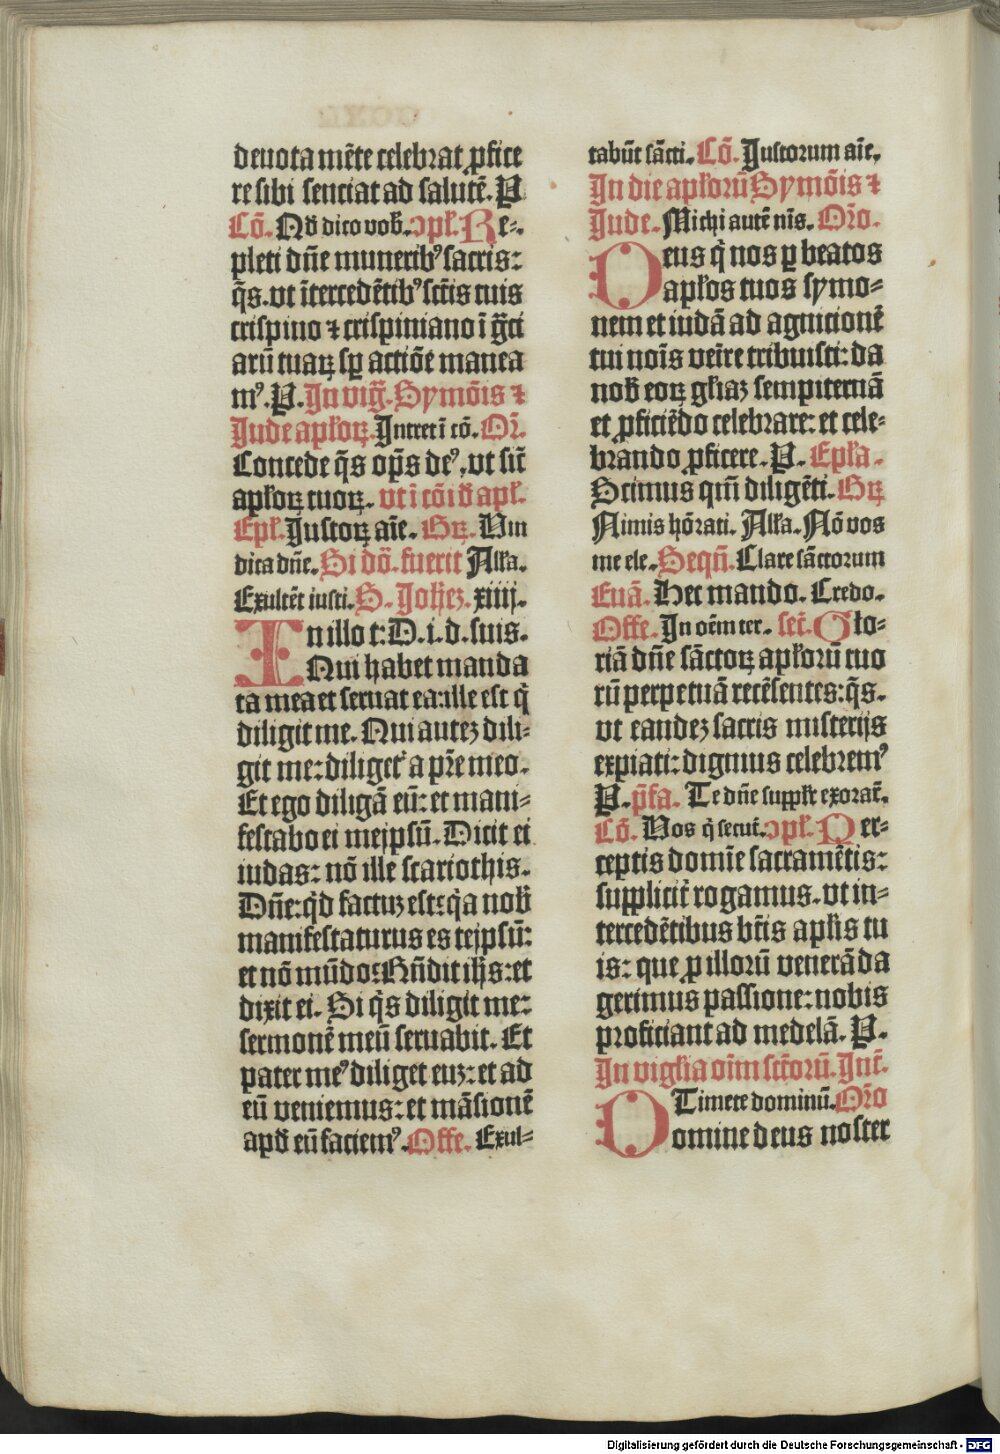 deuota mẽte celebrat ꝓfice
re sibi senciat ad salutẽ. P
Cõ. Nõ dico vob̃. ↄpl̃. Re⸗
pleti dñe munerib⁹ sacris:
q̃s. vt ĩtercedẽtib⁹ sctĩs tuis
crispino ⁊ crispiniano ĩ gr̃ci
arũ tuaꝝ sꝑ actiõe manea
m⁹. P. In vigl̃. Symõis ⁊
Jude apl̃oꝝ. Intret ĩ cõ. Or̃.
Concede q̃s op̃s de⁹, vt sic̃
apl̃oꝝ tuoꝝ. vt ĩ cõi d̃ apl̃.
Epl̃. Justoꝝ aĩe. Gꝝ. Vin
dica dñe. Si dõ. fuerit All̃a.
Exultẽt iusti. S. Joh̃ez. xiiij.
In illo t: D. i. d. suis.
Qui habet manda
ta mea et seruat ea: ille est q̃
diligit me. Qui autez dili⸗
git me: diliget᷑ a pr̃e meo.
Et ego diligã eũ: et mani⸗
festabo ei meipsũ. Dicit ei
iudas: nõ ille scariothis.
Dñe: q̃d factuz est: q̃a nob̃
manifestaturus es teipsũ:
et nõ mũdo: Rñdit ih̃s: et
dixit ei. Si q̃s diligit me:
sermonẽ meũ seruabit. Et
pater me⁹ diliget euz: et ad
eũ veniemus: et mãsionẽ
apd̃ eũ faciem⁹. Offe. Exul⸗
tabũt sãcti. Cõ. Justorum aĩe.
In die apl̃orũ Symõis ⁊
Jude. Michi autẽ nĩs. Orõ.
Deus q̃ nos ꝑ beatos
apl̃os tuos symo⸗
nem et iudã ad agnicionẽ
tui noĩs veire tribuisti: da
nob̃ eoꝝ gl̃iaz sempiternã
et ꝓficiẽdo celebrare: et cele⸗
brando ꝓficere. P. Epl̃a.
Scimus qm̃ diligẽti. Gꝝ
Nimis hõrati. All̃a. Nõ vos
me ele. Seqũ. Clare sãctorum
Euã. Hec mando. Credo.
Offe. In oẽm ter. sec̃. Glo⸗
riã dñe sãctoꝝ apl̃orũ tuo
rũ perpetuã recẽsentes: q̃s.
vt eandez sacris misterijs
expiati: dignius celebrem⁹
P. p̃fa. Te dñe supplr̃ exorar̃.
Cõ. Vos q̃ secuti. ↄpl̃. Per⸗
ceptis domĩe sacramẽtis:
suppliciter̃ rogamus. vt in⸗
tercedẽtibus btĩs apl̃is tu
is: que ꝑ illorũ venerãda
gerimus passione: nobis
proficiant ad medelã. P.
In vigl̃ia oĩm sctõrũ. Int̃.
Timete dominũ. Orõ
Domine deus noster
Digitalisierung gefördert durch die Deutsche Forschungsgemeinschaft - DFG